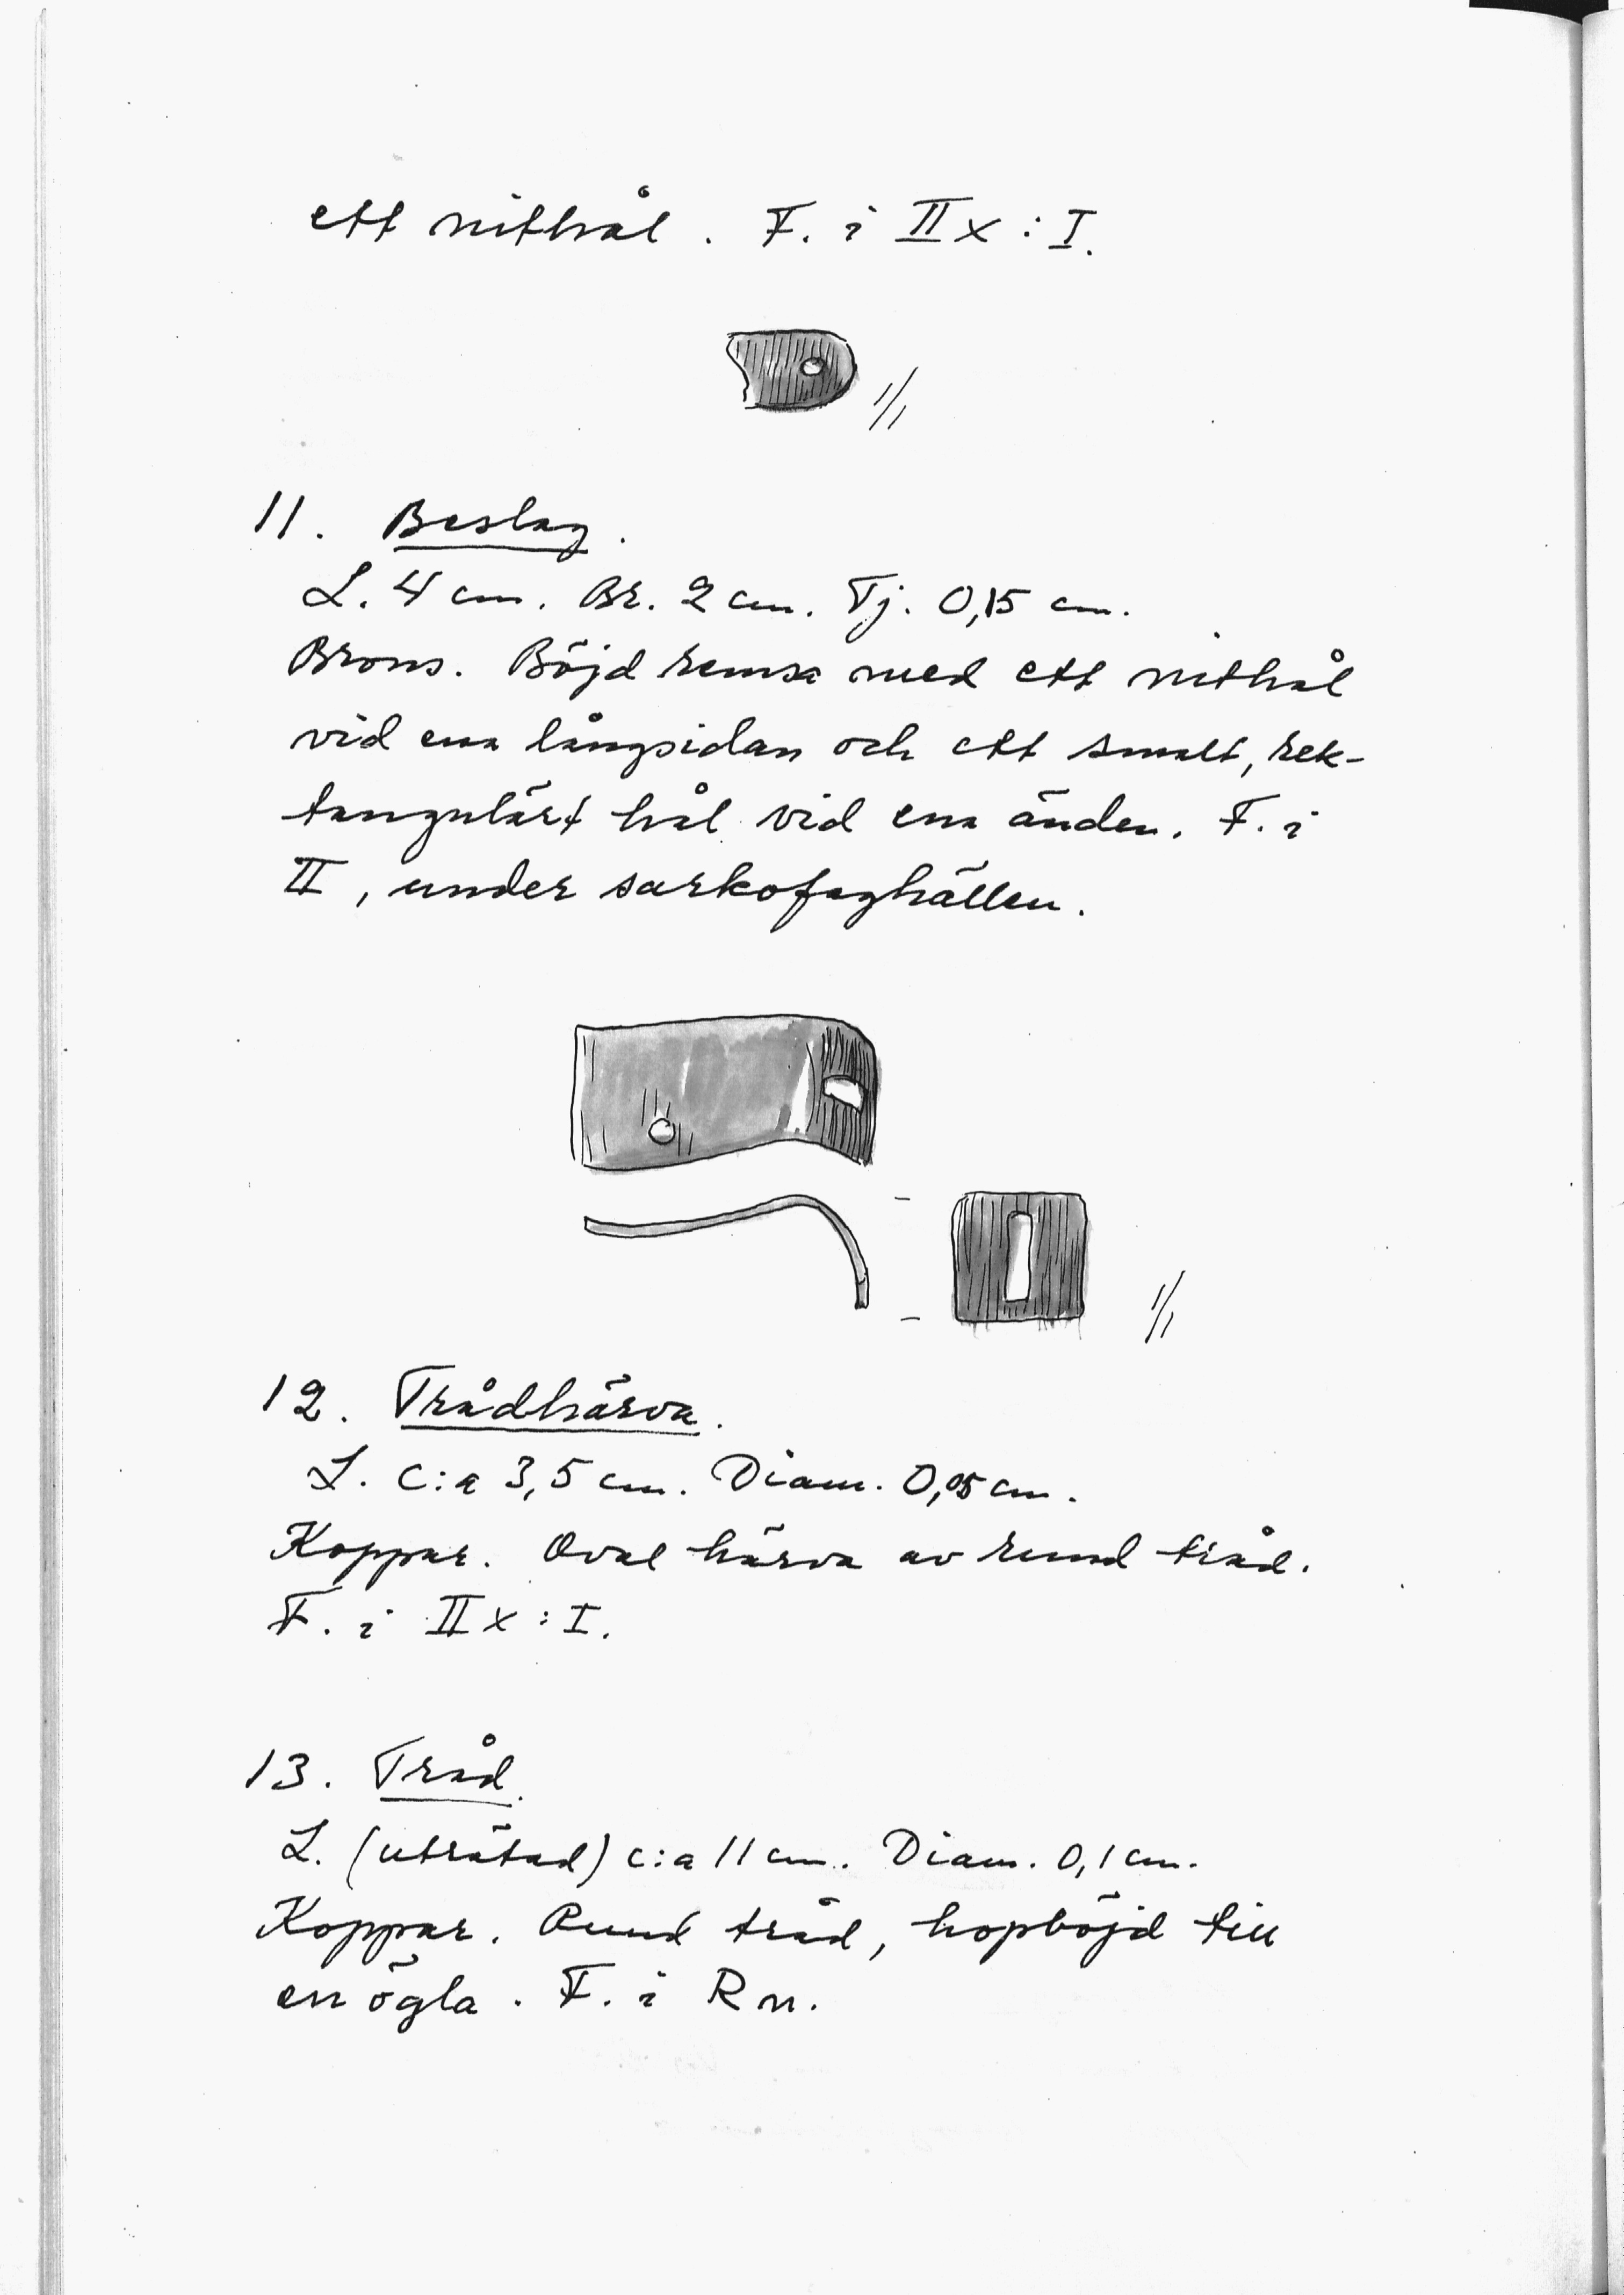 ett nithål. F. i II x : I.
1/1
11. Beslag.
L. 4 cm. Br. 2 cm. Tj. 0,15 cm.
Brons. Böjd remsa med ett nithål
vid ena långsidan och ett smalt, rek-
tangulärt hål vid ena änden. F. i
II, under sarkofaghällen.
1/1
12. Trådhärva.
L. c:a 3,5 cm. Diam. 0,05 cm.
Koppar. Oval härva av rund tråd.
F. i II x : I.
13. Tråd.
L. (uträtad) c:a 11 cm. Diam. 0,1 cm.
Koppar. Rund tråd, hopböjd till
en ögla. F. i R n.